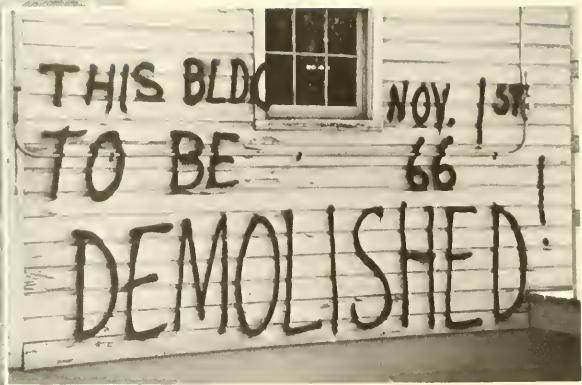 THIS BLDG NOV. 1ST
TO BE 66
DEMOLISHED!